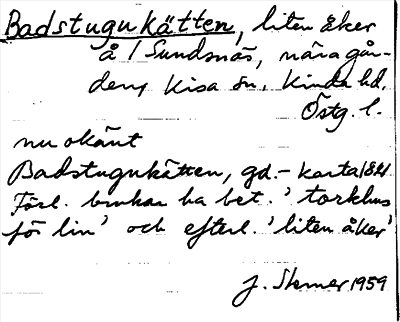 Badstugukätten, liten åker
å 1 Sundsnäs, nära går-
den, Kisa sn. Kinda hd.
Östg. l.
nu okänt
Badstugukätten, gd.- karta 1841
Förl. brukar ha bet. 'torkhus
för lin' och efterl. 'liten åker'
J. 1959